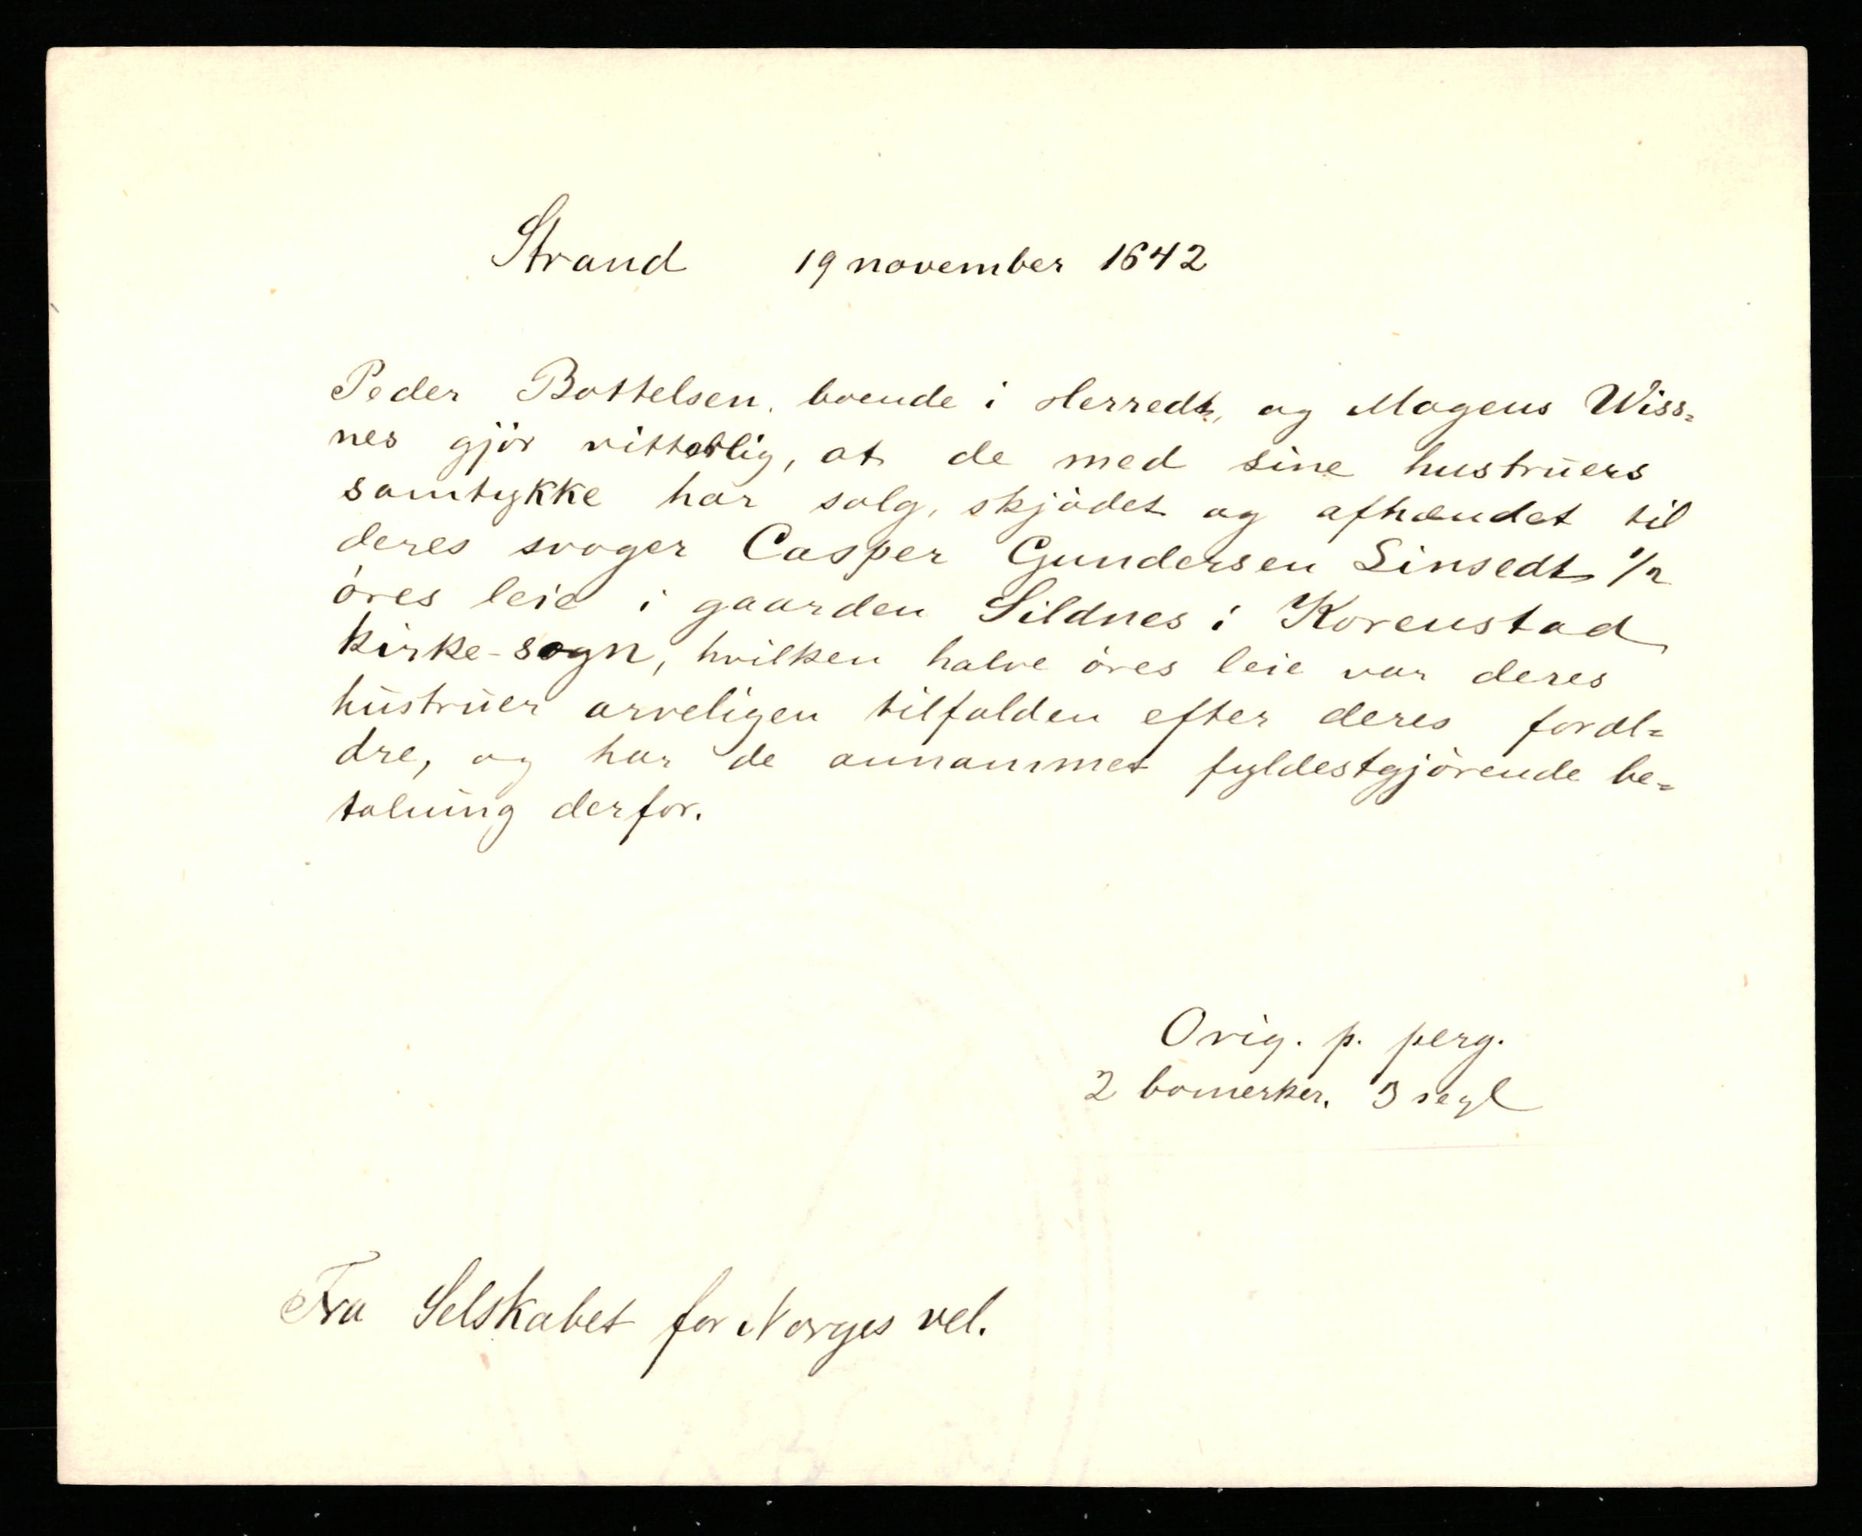 Strand 19 november 1642
Peder Bottelsen, boende i Herredt, og Mogens Wiss=
nes gjör vitterlig, at de med sine hustruers
samtykke har solg, skjödet og afhændet til
deres svoger Casper Gundersen Linsedt 1/2
öres leie i gaarden Sildnes i Korenstad
kirke-sogn, hvilken halve öres leie var deres
hustruer arveligen tilfalden efter deres foræl=
dre, og har de annammet fyldestgjörende be=
talning derfor.
Orig. p. perg.
2 bomerker. 3 segl
Fra Selskabet for Norges vel.